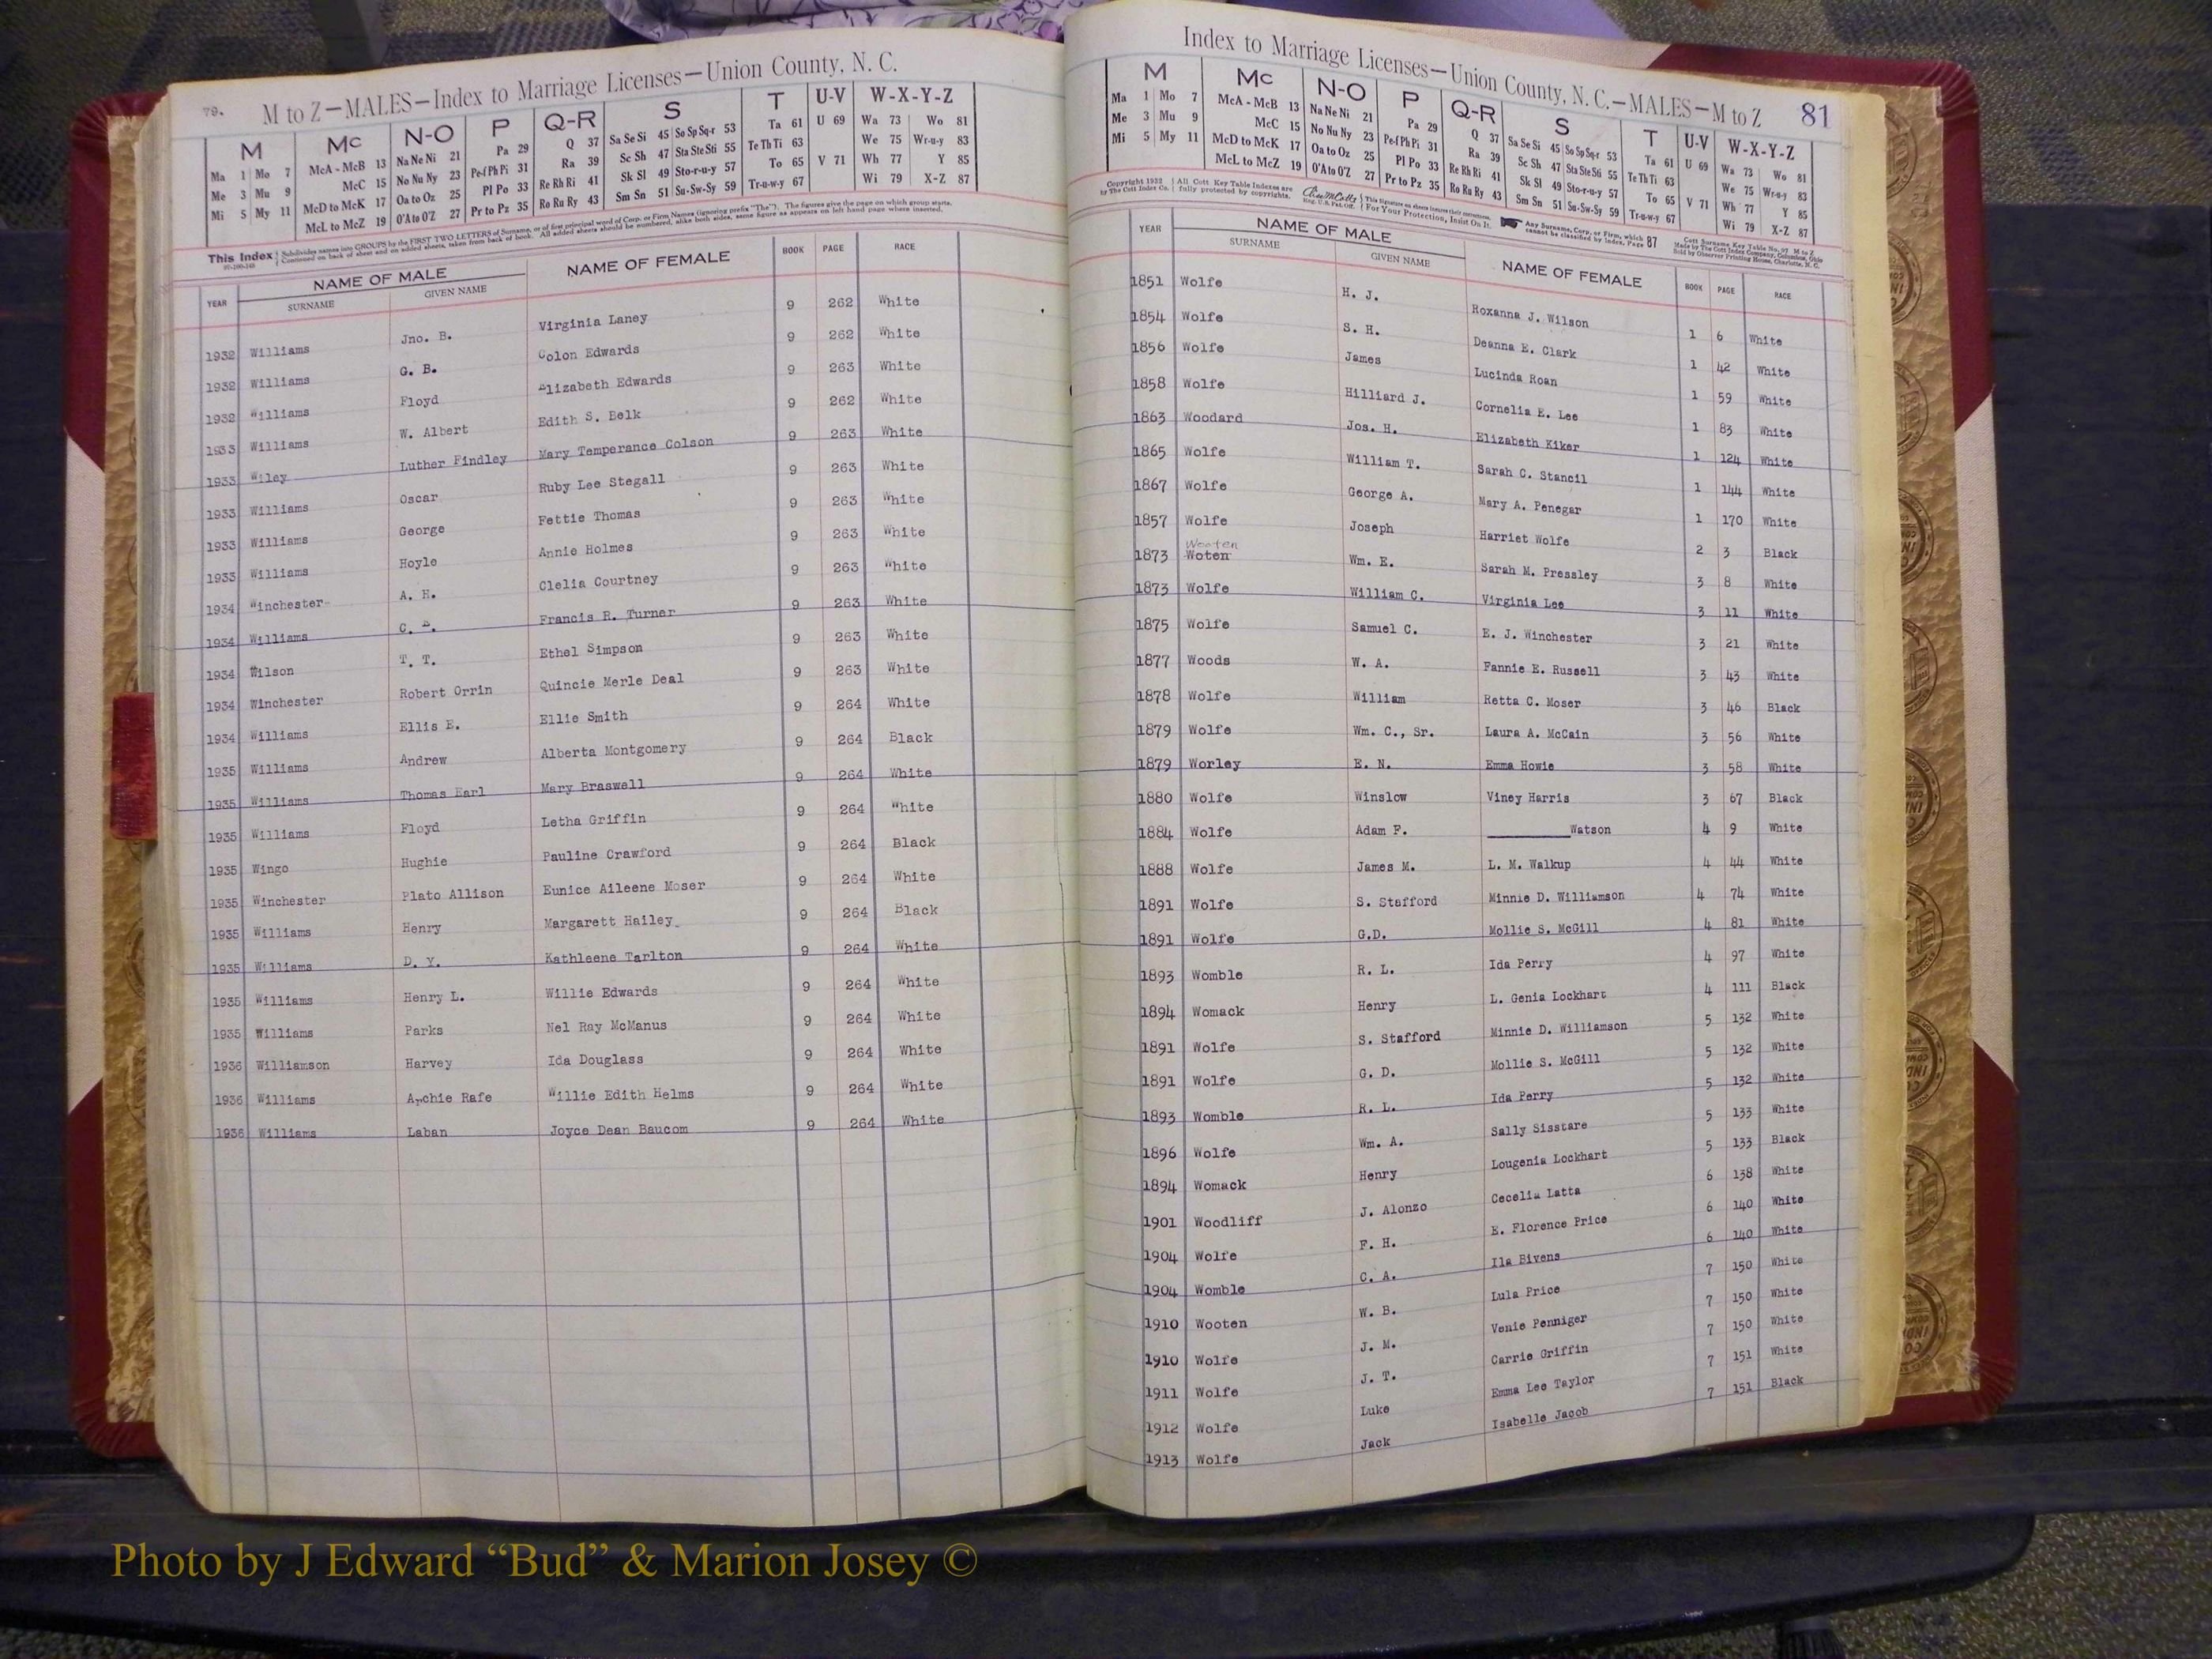 79.
M to Z—MALES—Index to Marriage Licenses—Union County, N. C.
M Mc N-O P Q-R S T U-V W-X-Y-Z
Ma 1 Mo 7 McA - McB 13 Na Ne Ni 21 Pa 29 Q 37 Sa Se Si 45 So Sp Sq-r 53 Ta 61 U 69 Wa 73 Wo 81
Me 3 Mu 9 McC 15 No Nu Ny 23 Pe-f Ph Pi 31 Ra 39 Sc Sh 47 Sta Ste Sti 55 Te Th Ti 63 We 75 Wr-u-y 83
Mi 5 My 11 McD to McK 17 Oa to Oz 25 Pl Po 33 Re Rh Ri 41 Sk Sl 49 Sto-r-u-y 57 To 65 V 71 Wh 77 Y 85
McL to McZ 19 O'A to O'Z 27 Pr to Pz 35 Ro Ru Ry 43 Sm Sn 51 Su-Sw-Sy 59 Tr-u-w-y 67 Wi 79 X-Z 87
This Index Subdivides names into GROUPS by the FIRST TWO LETTERS of Surname, or of first principal word of Corp. or Firm Names (ignoring prefix "The"). The figures give the page on which group starts.
Continued on back of sheet and on added sheets, taken from back of book. All added sheets should be numbered, alike both sides, same figure as appears on left hand page where inserted.
YEAR NAME OF MALE NAME OF FEMALE BOOK PAGE RACE
SURNAME GIVEN NAME
1932 Williams Jno. B. Virginia Laney 9 262 White
1932 Williams G. B. Colon Edwards 9 262 White
1932 Williams Floyd Elizabeth Edwards 9 263 White
1933 Williams W. Albert Edith S. Belk 9 262 White
1933 Wiley Luther Findley Mary Temperance Colson 9 263 White
1933 Williams Oscar Ruby Lee Stegall 9 263 White
1933 Williams George Fettie Thomas 9 263 White
1933 Williams Hoyle Annie Holmes 9 263 White
1934 Winchester A. H. Clelia Courtney 9 263 White
1934 Williams C. B. Francis R. Turner 9 263 White
1934 Wilson T. T. Ethel Simpson 9 263 White
1934 Winchester Robert Orrin Quincie Merle Deal 9 263 White
1934 Williams Ellis E. Ellie Smith 9 264 White
1935 Williams Andrew Alberta Montgomery 9 264 Black
1935 Williams Thomas Earl Mary Braswell 9 264 White
1935 Williams Floyd Letha Griffin 9 264 White
1935 Wingo Hughie Pauline Crawford 9 264 Black
1935 Winchester Plato Allison Eunice Aileene Moser 9 264 White
1935 Williams Henry Margarett Hailey 9 264 Black
1935 Williams D. Y. Kathleene Tarlton 9 264 White
1935 Williams Henry L. Willie Edwards 9 264 White
1935 Williams Parks Nel Ray McManus 9 264 White
1936 Williamson Harvey Ida Douglass 9 264 White
1936 Williams Archie Rafe Willie Edith Helms 9 264 White
1936 Williams Laban Joyce Dean Baucom 9 264 White
Index to Marriage Licenses—Union County, N. C.—MALES—M to Z 81
M Mc N-O P Q-R S T U-V W-X-Y-Z
Ma 1 Mo 7 McA - McB 13 Na Ne Ni 21 Pa 29 Q 37 Sa Se Si 45 So Sp Sq-r 53 Ta 61 U 69 Wa 73 Wo 81
Me 3 Mu 9 McC 15 No Nu Ny 23 Pe-f Ph Pi 31 Ra 39 Sc Sh 47 Sta Ste Sti 55 Te Th Ti 63 We 75 Wr-u-y 83
Mi 5 My 11 McD to McK 17 Oa to Oz 25 Pl Po 33 Re Rh Ri 41 Sk Sl 49 Sto-r-u-y 57 To 65 V 71 Wh 77 Y 85
McL to McZ 19 O'A to O'Z 27 Pr to Pz 35 Ro Ru Ry 43 Sm Sn 51 Su-Sw-Sy 59 Tr-u-w-y 67 Wi 79 X-Z 87
Copyright 1932 by The Cott Index Co. All Cott Key Table Indexes are fully protected by copyrights. For Your Protection, Insist On It. Any Surname, Corp. or Firm, which cannot be classified by Index, Page 87
YEAR NAME OF MALE NAME OF FEMALE BOOK PAGE RACE
SURNAME GIVEN NAME
1851 Wolfe H. J. Roxanna J. Wilson 1 6 White
1854 Wolfe S. H. Deanna E. Clark 1 42 White
1856 Wolfe James Lucinda Roan 1 59 White
1858 Wolfe Hilliard J. Cornelia E. Lee 1 83 White
1863 Woodard Jos. H. Elizabeth Kiker 1 124 White
1865 Wolfe William T. Sarah C. Stancil 1 144 White
1867 Wolfe George A. Mary A. Penegar 1 170 White
1857 Wolfe Joseph Harriet Wolfe 2 3 Black
Wooten
1873 Woten Wm. E. Sarah M. Pressley 3 8 White
1873 Wolfe William C. Virginia Lee 3 11 White
1875 Wolfe Samuel C. E. J. Winchester 3 21 White
1877 Woods W. A. Fannie E. Russell 3 43 White
1878 Wolfe William Retta C. Moser 3 46 Black
1879 Wolfe Wm. C., Sr. Laura A. McCain 3 56 White
1879 Worley E. N. Emma Howie 3 58 White
1880 Wolfe Winslow Viney Harris 3 67 Black
1884 Wolfe Adam F. ________Watson 4 9 White
1888 Wolfe James M. L. M. Walkup 4 44 White
1891 Wolfe S. Stafford Minnie D. Williamson 4 74 White
1891 Wolfe G.D. Mollie S. McGill 4 81 White
1893 Womble R. L. Ida Perry 4 97 White
1894 Womack Henry L. Genia Lockhart 4 111 Black
1891 Wolfe S. Stafford Minnie D. Williamson 5 132 White
1891 Wolfe G. D. Mollie S. McGill 5 132 White
1893 Womble R. L. Ida Perry 5 132 White
1896 Wolfe Wm. A. Sally Sisstare 5 133 White
1894 Womack Henry Lougenia Lockhart 5 133 Black
1901 Woodliff J. Alonzo Cecelia Latta 6 138 White
1904 Wolfe F. H. E. Florence Price 6 140 White
1904 Womble C. A. Ila Bivens 6 140 White
1910 Wooten W. B. Lula Price 7 150 White
1910 Wolfe J. M. Venie Penniger 7 150 White
1911 Wolfe J. T. Carrie Griffin 7 150 White
1912 Wolfe Luke Emma Lee Taylor 7 151 White
1913 Wolfe Jack Isabelle Jacob 7 151 Black
Photo by J Edward “Bud” & Marion Josey ©